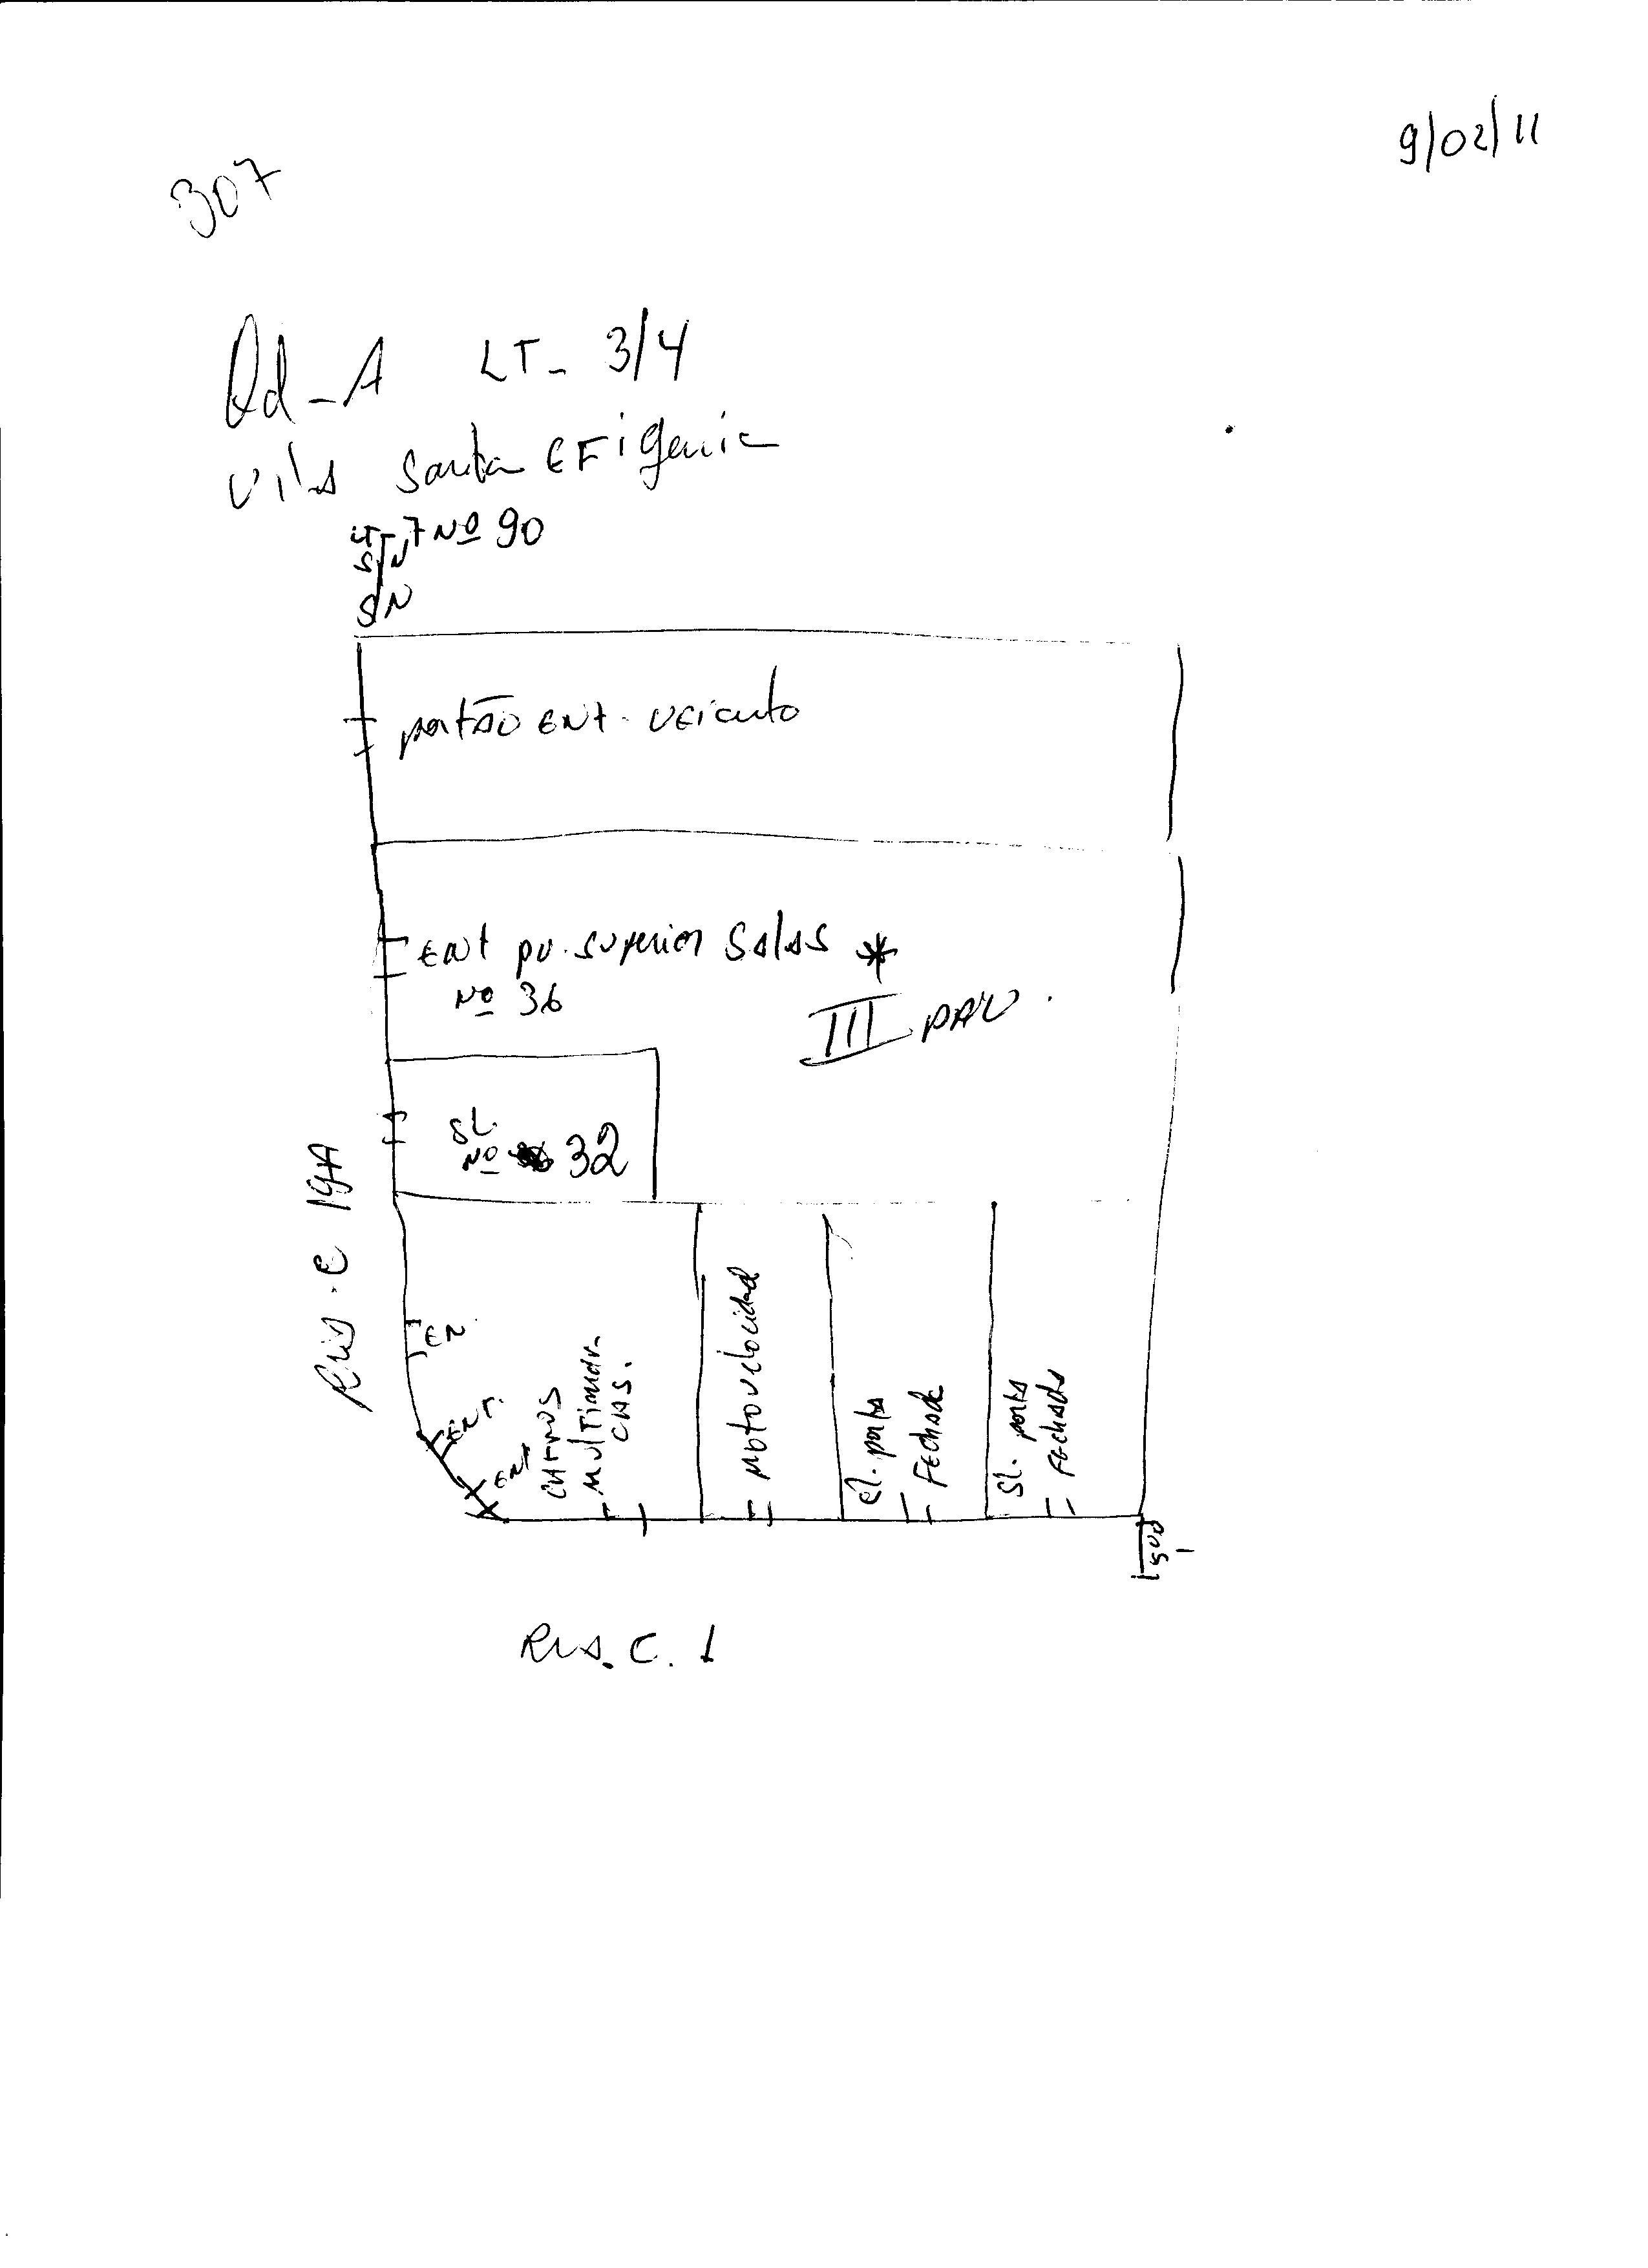 9/02/11
307
Qd - A LT - 3/4
Vila Santa EFigenia
LT-7 Nº 90
S/N
S/N
portão ENt. VEiculo
ENt pv. superior SAlAS *
Nº 36
III PAV.
SL.
Nº 32
RuA. C 19A
EN.
ENT.
ENT
CArros
MultimAr-
CAS.
Motovelocidad
Sl. portA
FEchAdA
Sl. portA
FEchAdA
RuA. C. 1